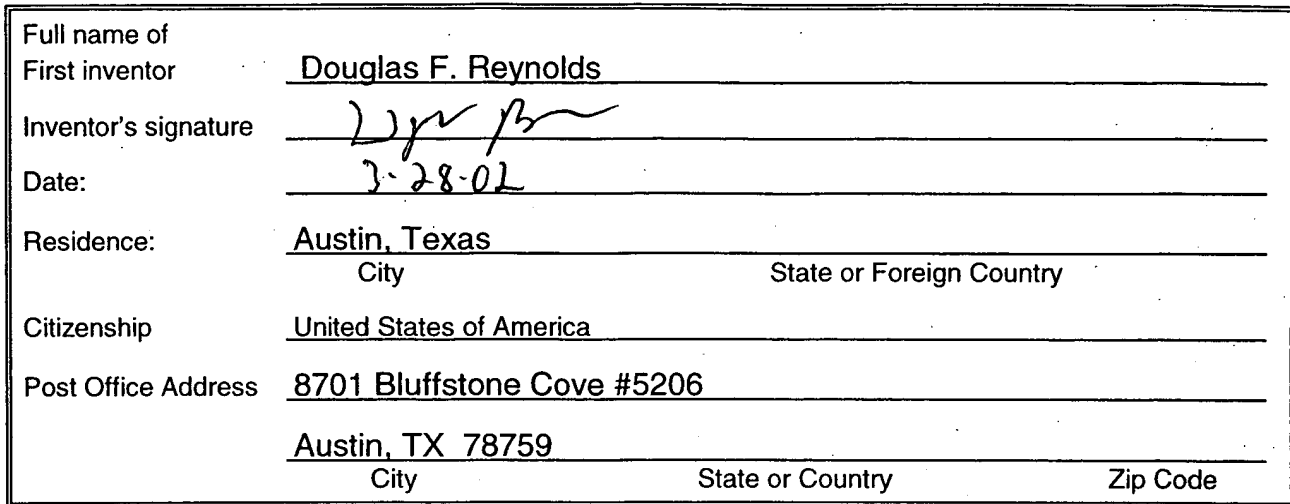 Full name of
First inventor Douglas F. Reynolds
Inventor's signature
Date: 3-28-02
Residence: Austin, Texas
City State or Foreign Country
Citizenship United States of America
Post Office Address 8701 Bluffstone Cove #5206
Austin, TX 78759
City State or Country Zip Code